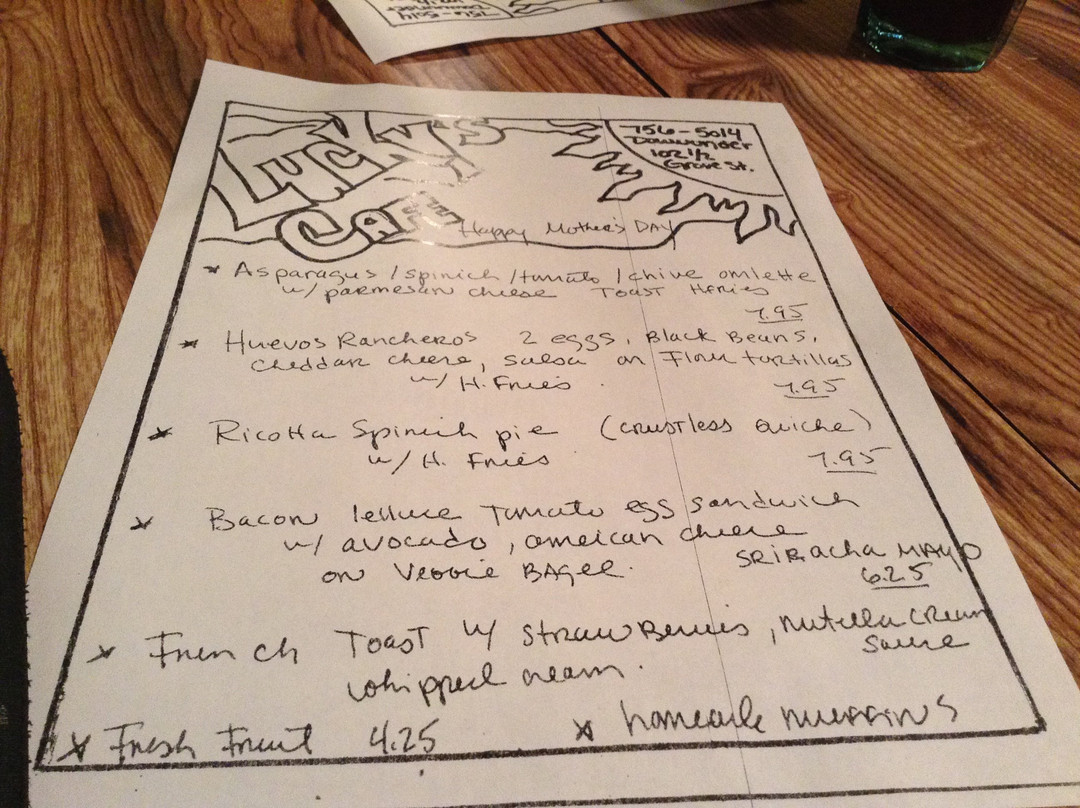 Lucky's
Cafe
756-5014
Downunder
102 1/2
Grove St.
Happy Mother's DAy
* Asparagus / spinich / tomato / chive omlette
w/ parmesan cheese Toast Hfries
7.95
* Huevos Rancheros 2 eggs, Black Beans,
cheddar cheese, salsa on Flour tortillas
w/ H. Fries
7.95
* Ricotta Spinich pie (crustless quiche)
w/ H. Fries
7.95
* Bacon lettuce Tomato egg sandwich
w/ avocado, ameican cheese
on Veggie BAgel. SRiRacha MAYO
6.25
* French Toast w/ strawBerries, nutella cream
sauce
whipped cream.
* Fresh Fruit 4.25 * homeade muffins
756-5014